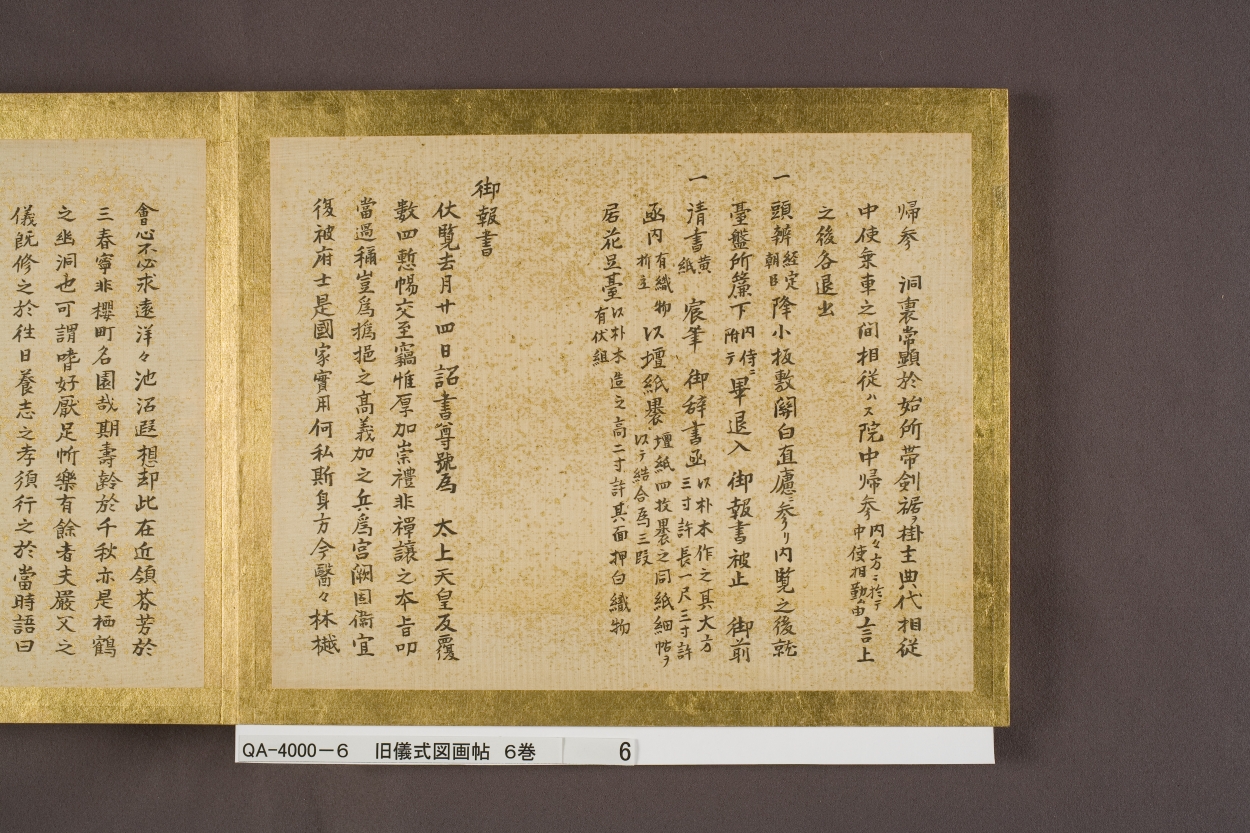 帰参　洞裏常顕於始所帯剣裾ヲ掛主典代相従
中使乗車之間相従ハス院中帰参内々方ニ於テ中使相勤由言上
之後各退出
一頭辨経定朝臣降小板敷関白直廬ニ参リ内覧之後就
臺盤所簾下内侍ニ附テ畢退入　御報書被止　御前
一清書黄紙　宸筆　御辞書函以朴木作之其大方三寸許長一尺三寸許
函内有織物折立以壇紙褁壇紙四枚褁之同紙細帖ヲ以テ結合為三段
居花足臺以朴木造之高二寸許其面押白織物有伏組
御報書
伏覧去月廿四日詔書尊號為　太上天皇反覆
数四慙惕交至竊惟厚加崇禮非禪譲之本旨叩
當過稱豈為撝挹之高義加之兵為宮闕固衞宜
復被府士是國家實用何私斯身方今醫々林樾
會心不必求遠洋々池沼遐想却此在近領芬芳於
三春寧非櫻町名園哉期壽齡於千秋亦是栖鶴
之幽洞也可謂嗜好厭足忻樂有餘者夫嚴父之
儀既修之於往日養志之孝須行之於當時語曰
QA-4000-6　旧儀式図画帖　6巻　6